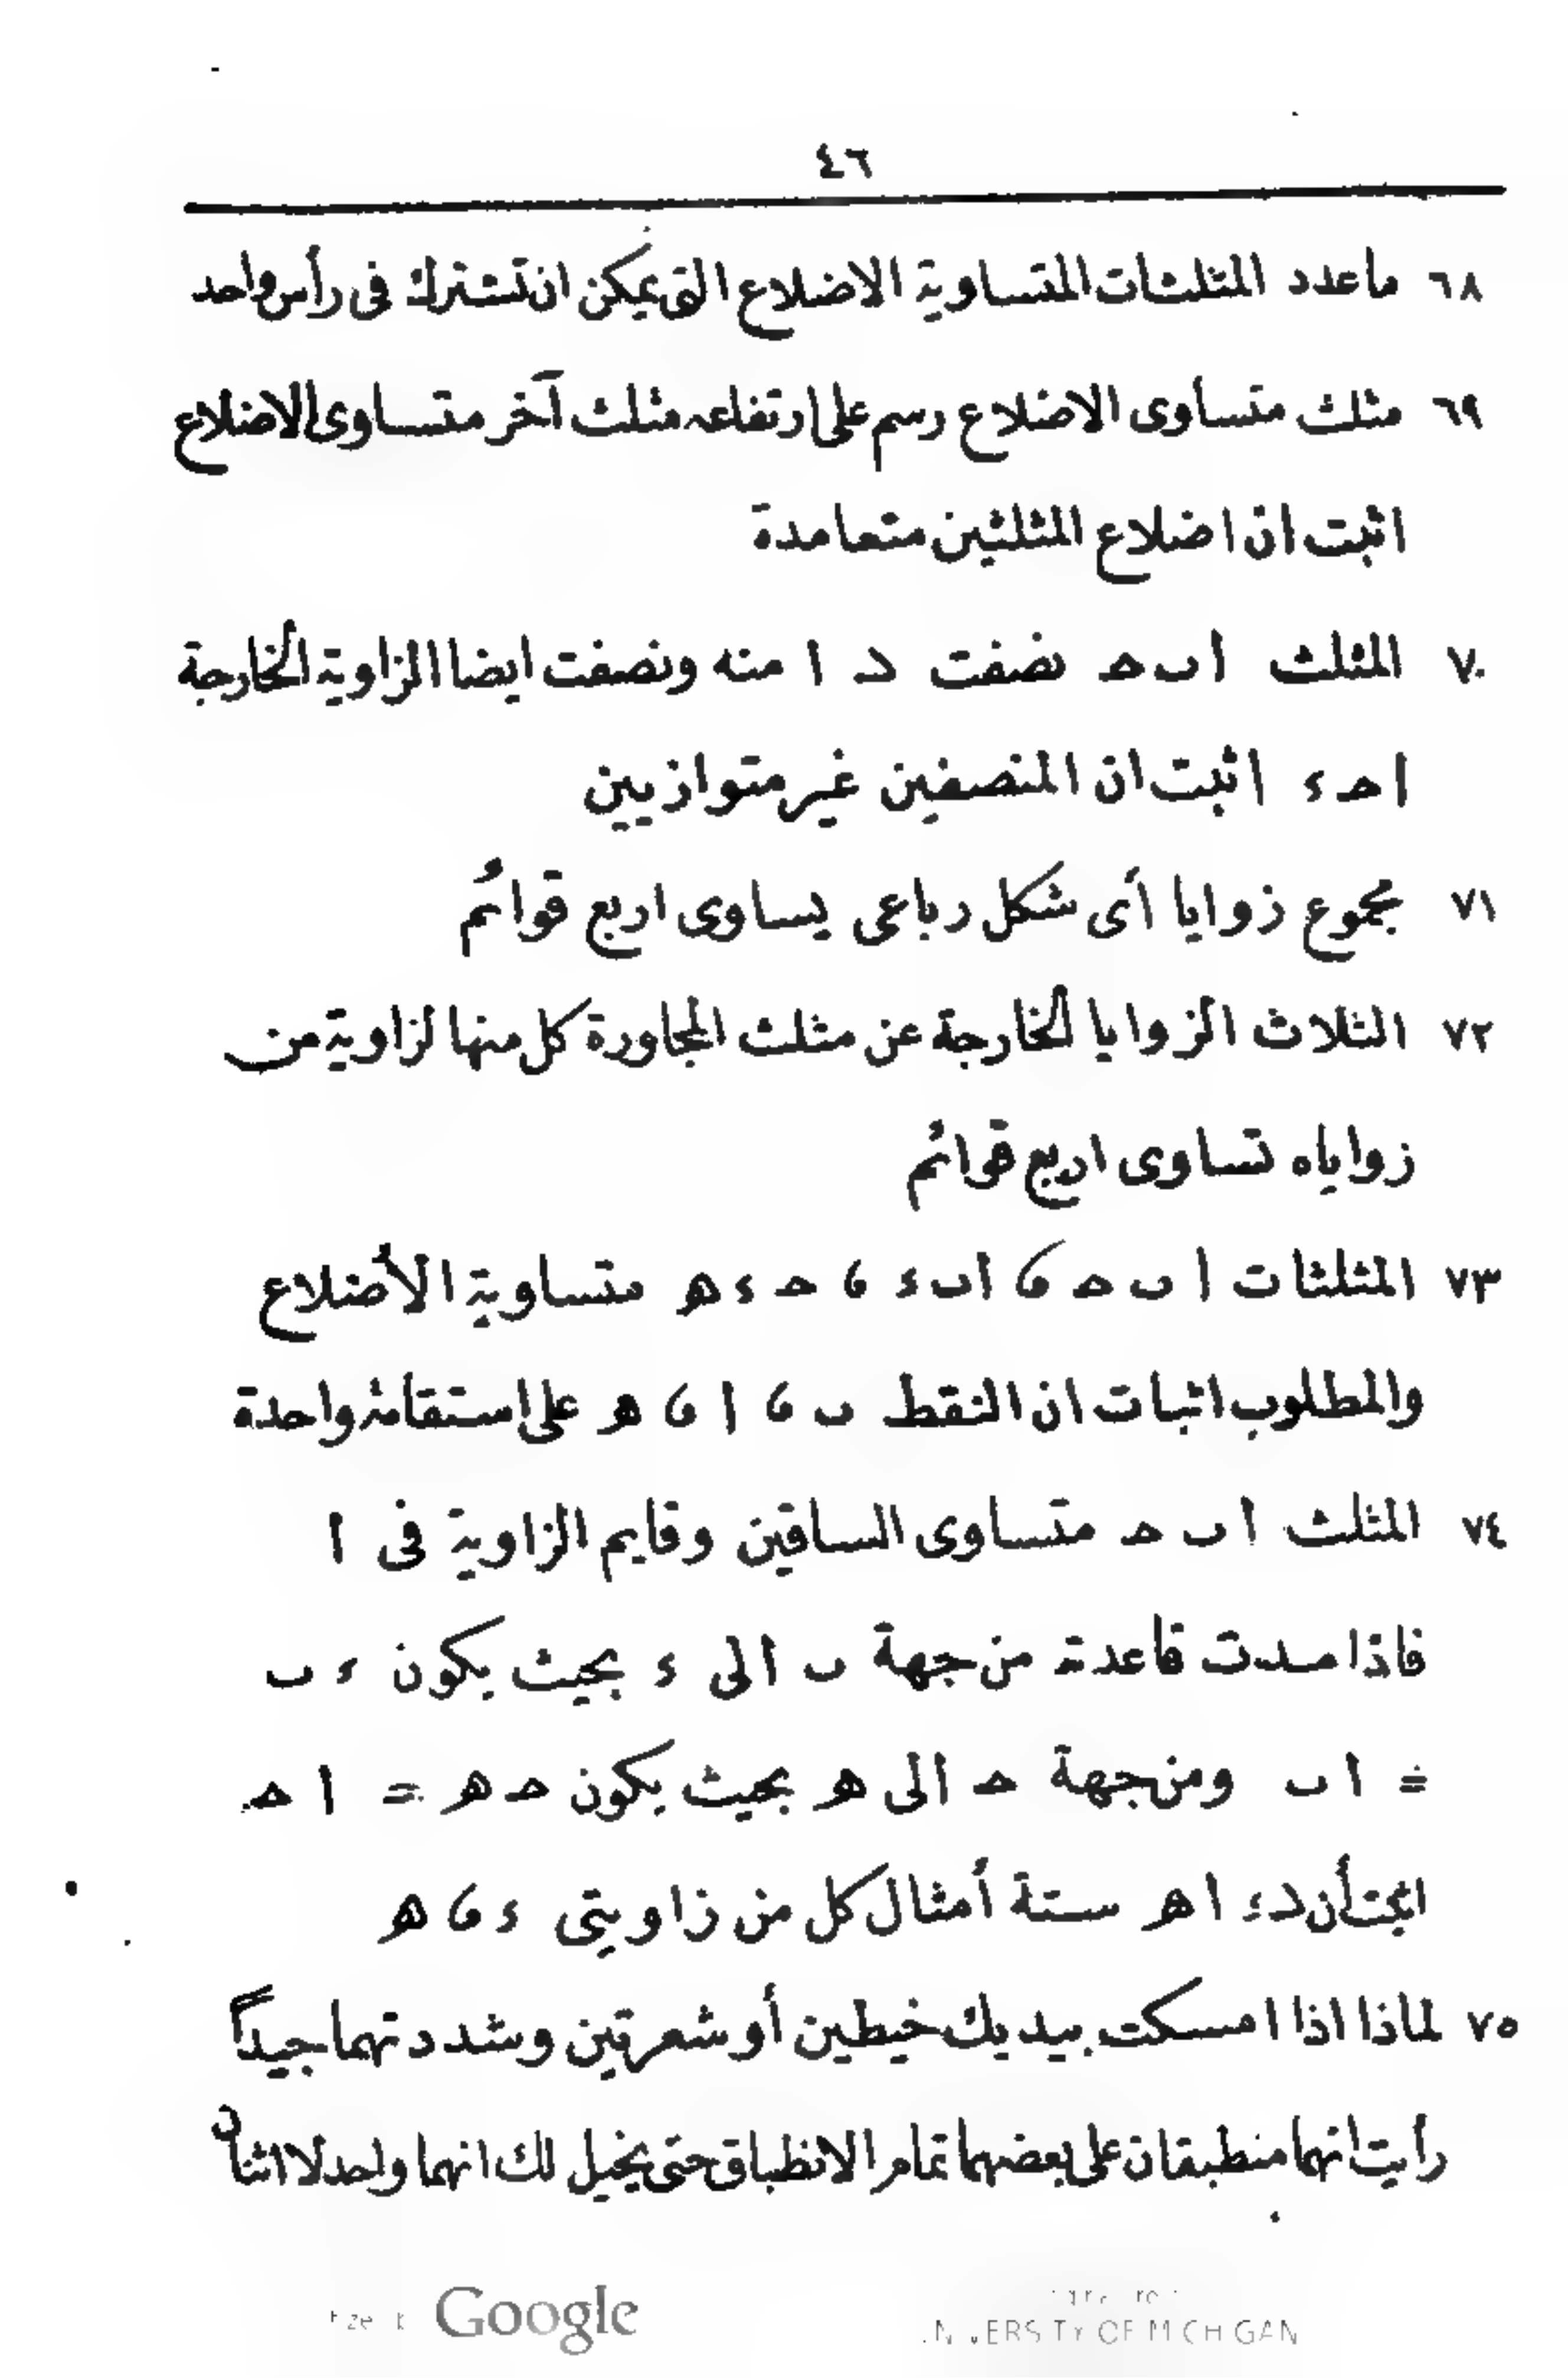 ٤٦
٦٨ ما عدد المثلثات المتساوية الاضلاع التى يمكن ان تشترك فى رأس واحد
٦٩ مثلث متساوى الاضلاع رسم على ارتفاعه مثلث آخر متساوى الاضلاع
اثبت ان اضلاع المثلثين متعامدة
٧٠ المثلث ا ب ح نصفت د ا منه ونصفت ايضا الزاوية الخارجة
ا ح ء اثبت ان المنصفين غير متوازيين
٧١ مجموع زوايا أى شكل رباعى يساوى اربع قوائم
٧٢ الثلاث الزوايا الخارجة عن مثلث المجاورة كل منها لزاوية من
زواياه تساوى اربع قوائم
٧٣ المثلثات ا ب ح ، ا ب ء ، ح ء ه متساوية الأضلاع
والمطلوب اثبات ان النقط ب ، ا ، ه على استقامة واحدة
٧٤ المثلث ا ب ح متساوى الساقين وقايم الزاوية فى ا
فاذا مدت قاعدته من جهة ب الى ء بحيث يكون ء ب
= ا ب ومن جهة ح الى ه بحيث يكون ح ه = ا ح
اثبت أن د ء ا ه ستة أمثال كل من زاويتى ء ، ه
٧٥ لماذا اذا امسكت بيديك خيطين أو شعرتين وشددتهما جيداً
رأيت انهما منطبقان على بعضهما تمام الانطباق حتى يخيل لك انهما واحد لا اثنان
Google
UNIVERSITY OF MICHIGAN